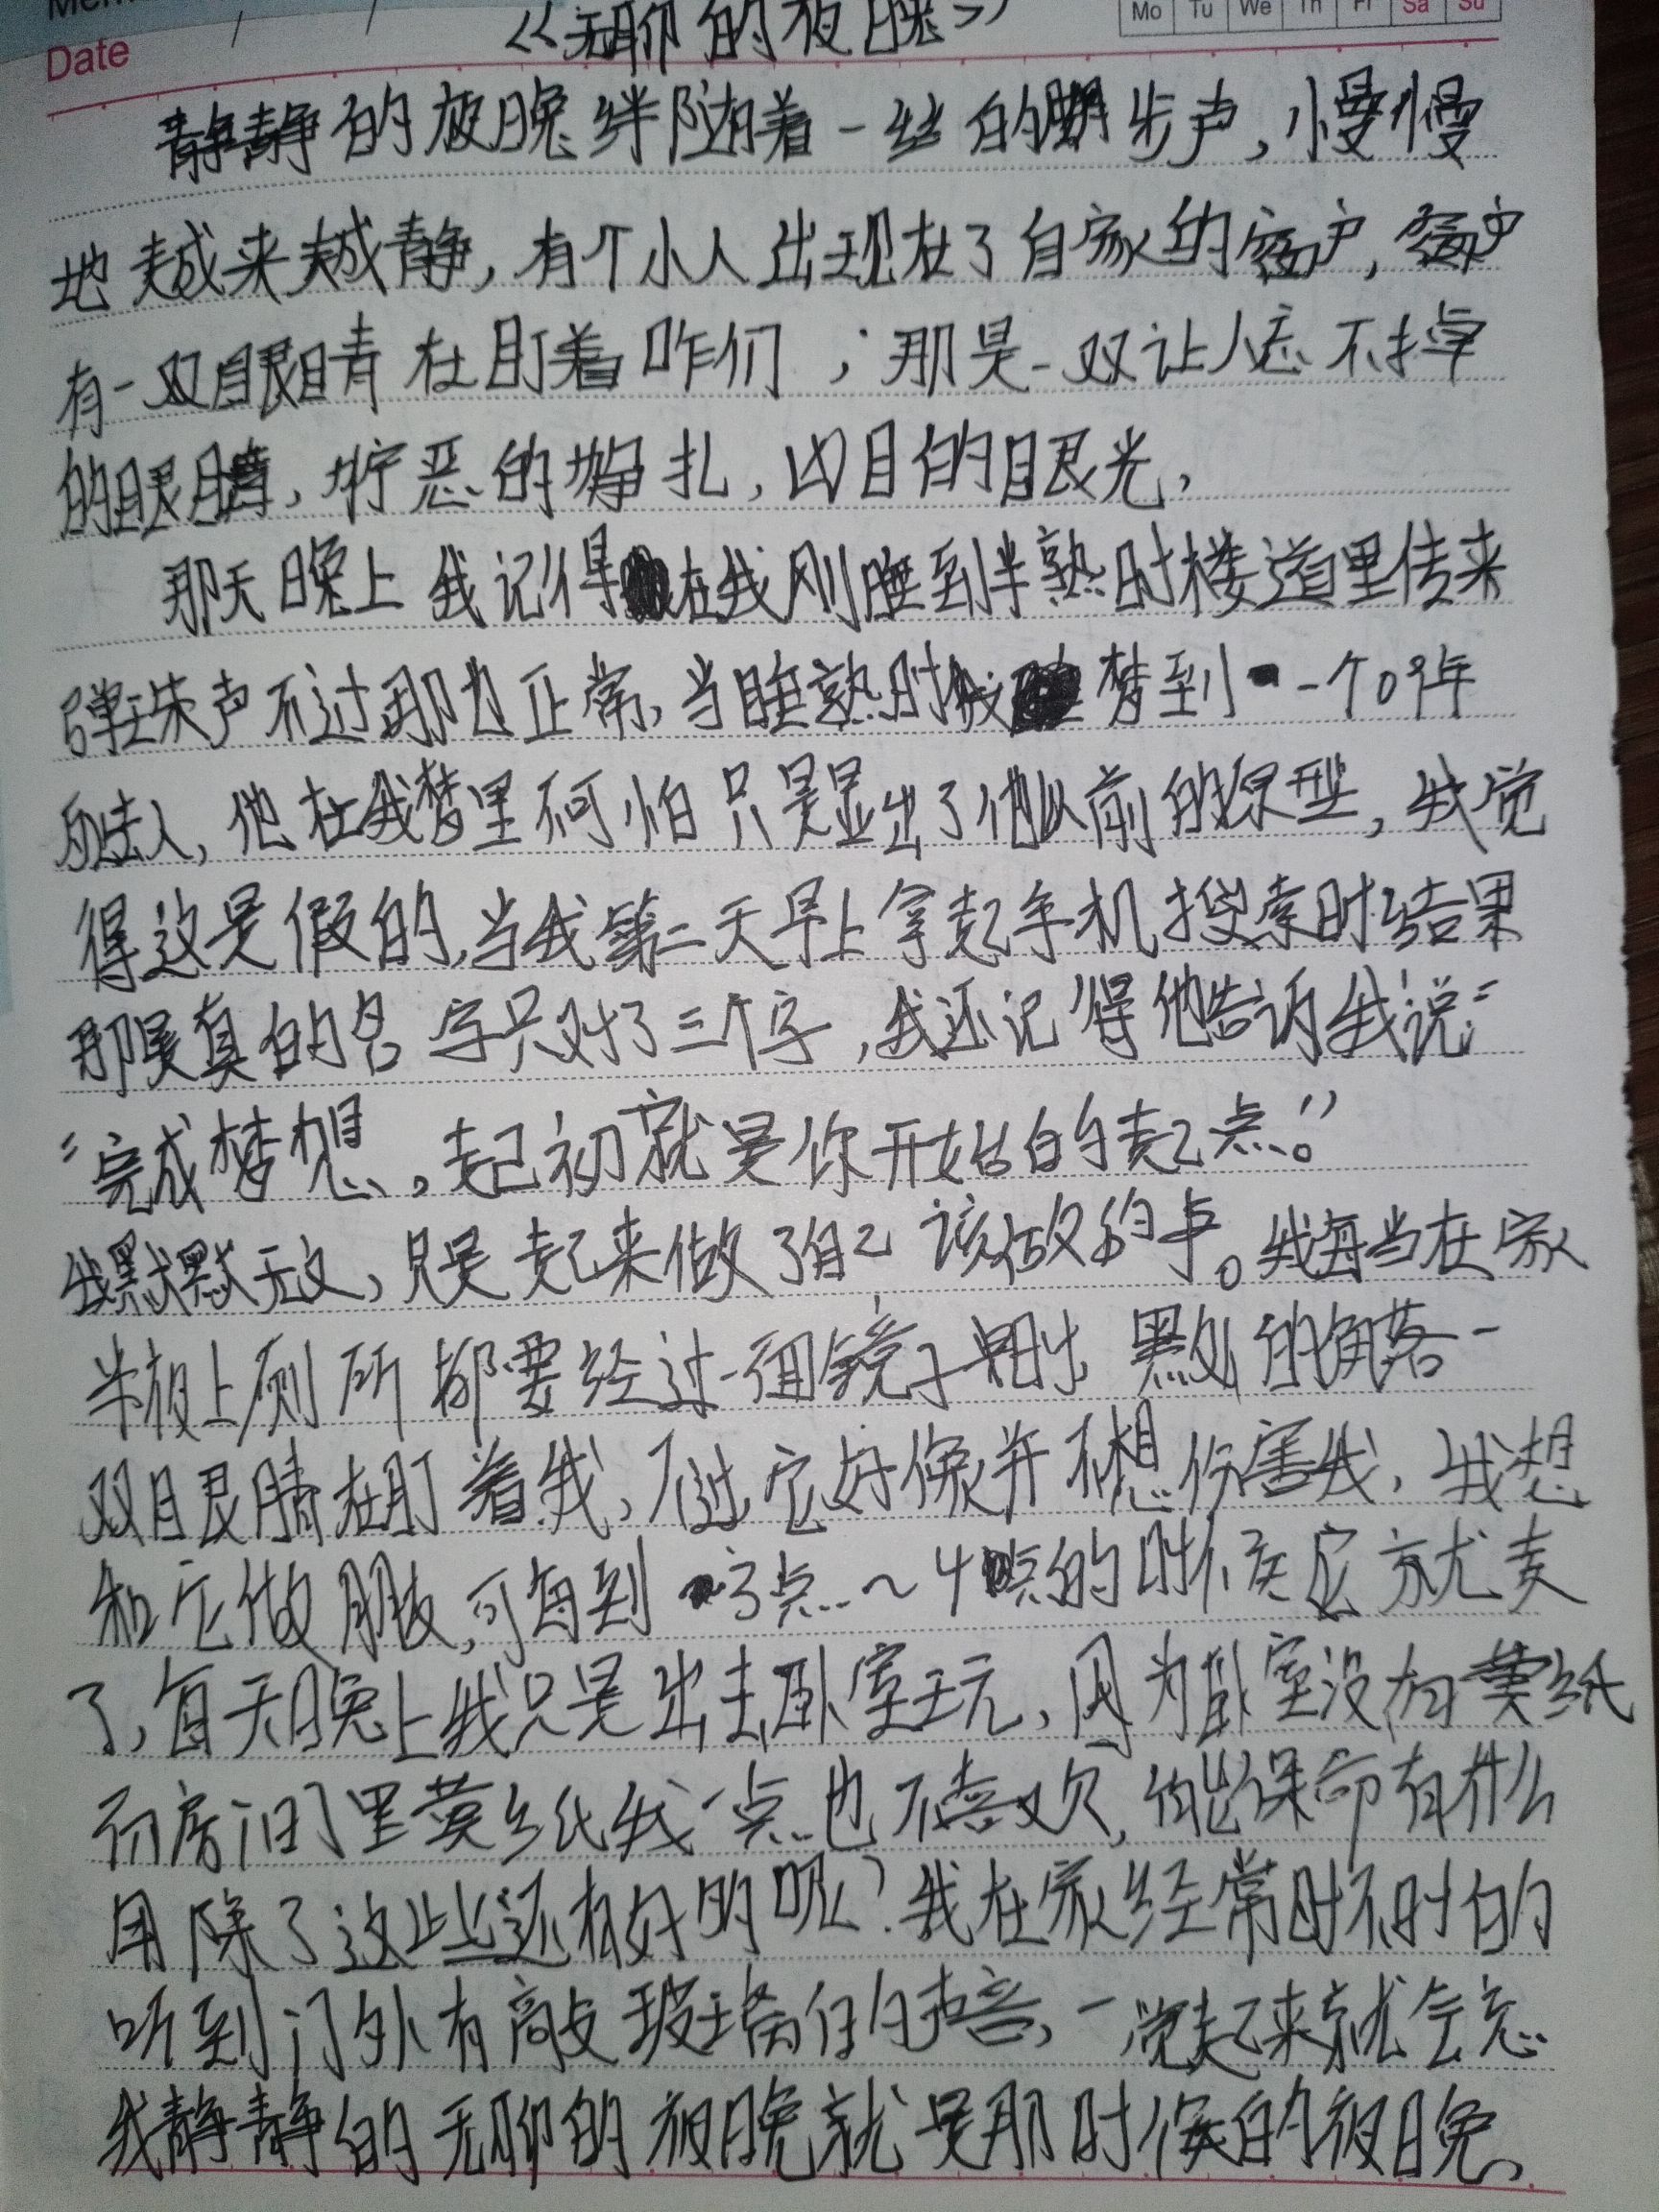 Date / /
Mo Tu We Th Fr Sa Su
《无聊的夜晚》
静静的夜晚绊随着一丝的脚步声，慢慢
地越来越静，有个小人出现在了自家的窗户，窗户
有一双眼睛在盯着咋们；那是一双让人忘不掉
的眼睛，狞恶的挣扎，凶目的眼光，
那天晚上我记得在我刚睡到半熟时楼道里传来
弹珠声不过那也正常，当睡熟时我梦到一个09年
去人，他在我梦里不可怕只是显出了他以前的原型，我觉
得这是假的，当我第二天早上拿起手机搜索时结果
那是真的名字只对了三个字，我还记得他告诉我说：
“完成梦想，起初就是你开始的起点。”
我默默无文，只是起来做了自己该做的事。我每当在家
半夜上厕所都要经过一面镜子 黑处的角落一
双眼睛在盯着我，不过它好像并不想伤害我，我想
和它做朋友，可每到3点～4点的时候它就走
了，每天晚上我只是出去卧室玩，因为卧室没有黄纸
而房间里黄纸我一点也不喜欢，能保命有什么
用除了这些还有好的呢？我在家经常时不时的
听到门外有敲玻璃的声音，一觉起来就会忘
我静静的无聊的夜晚就是那时候的夜晚、